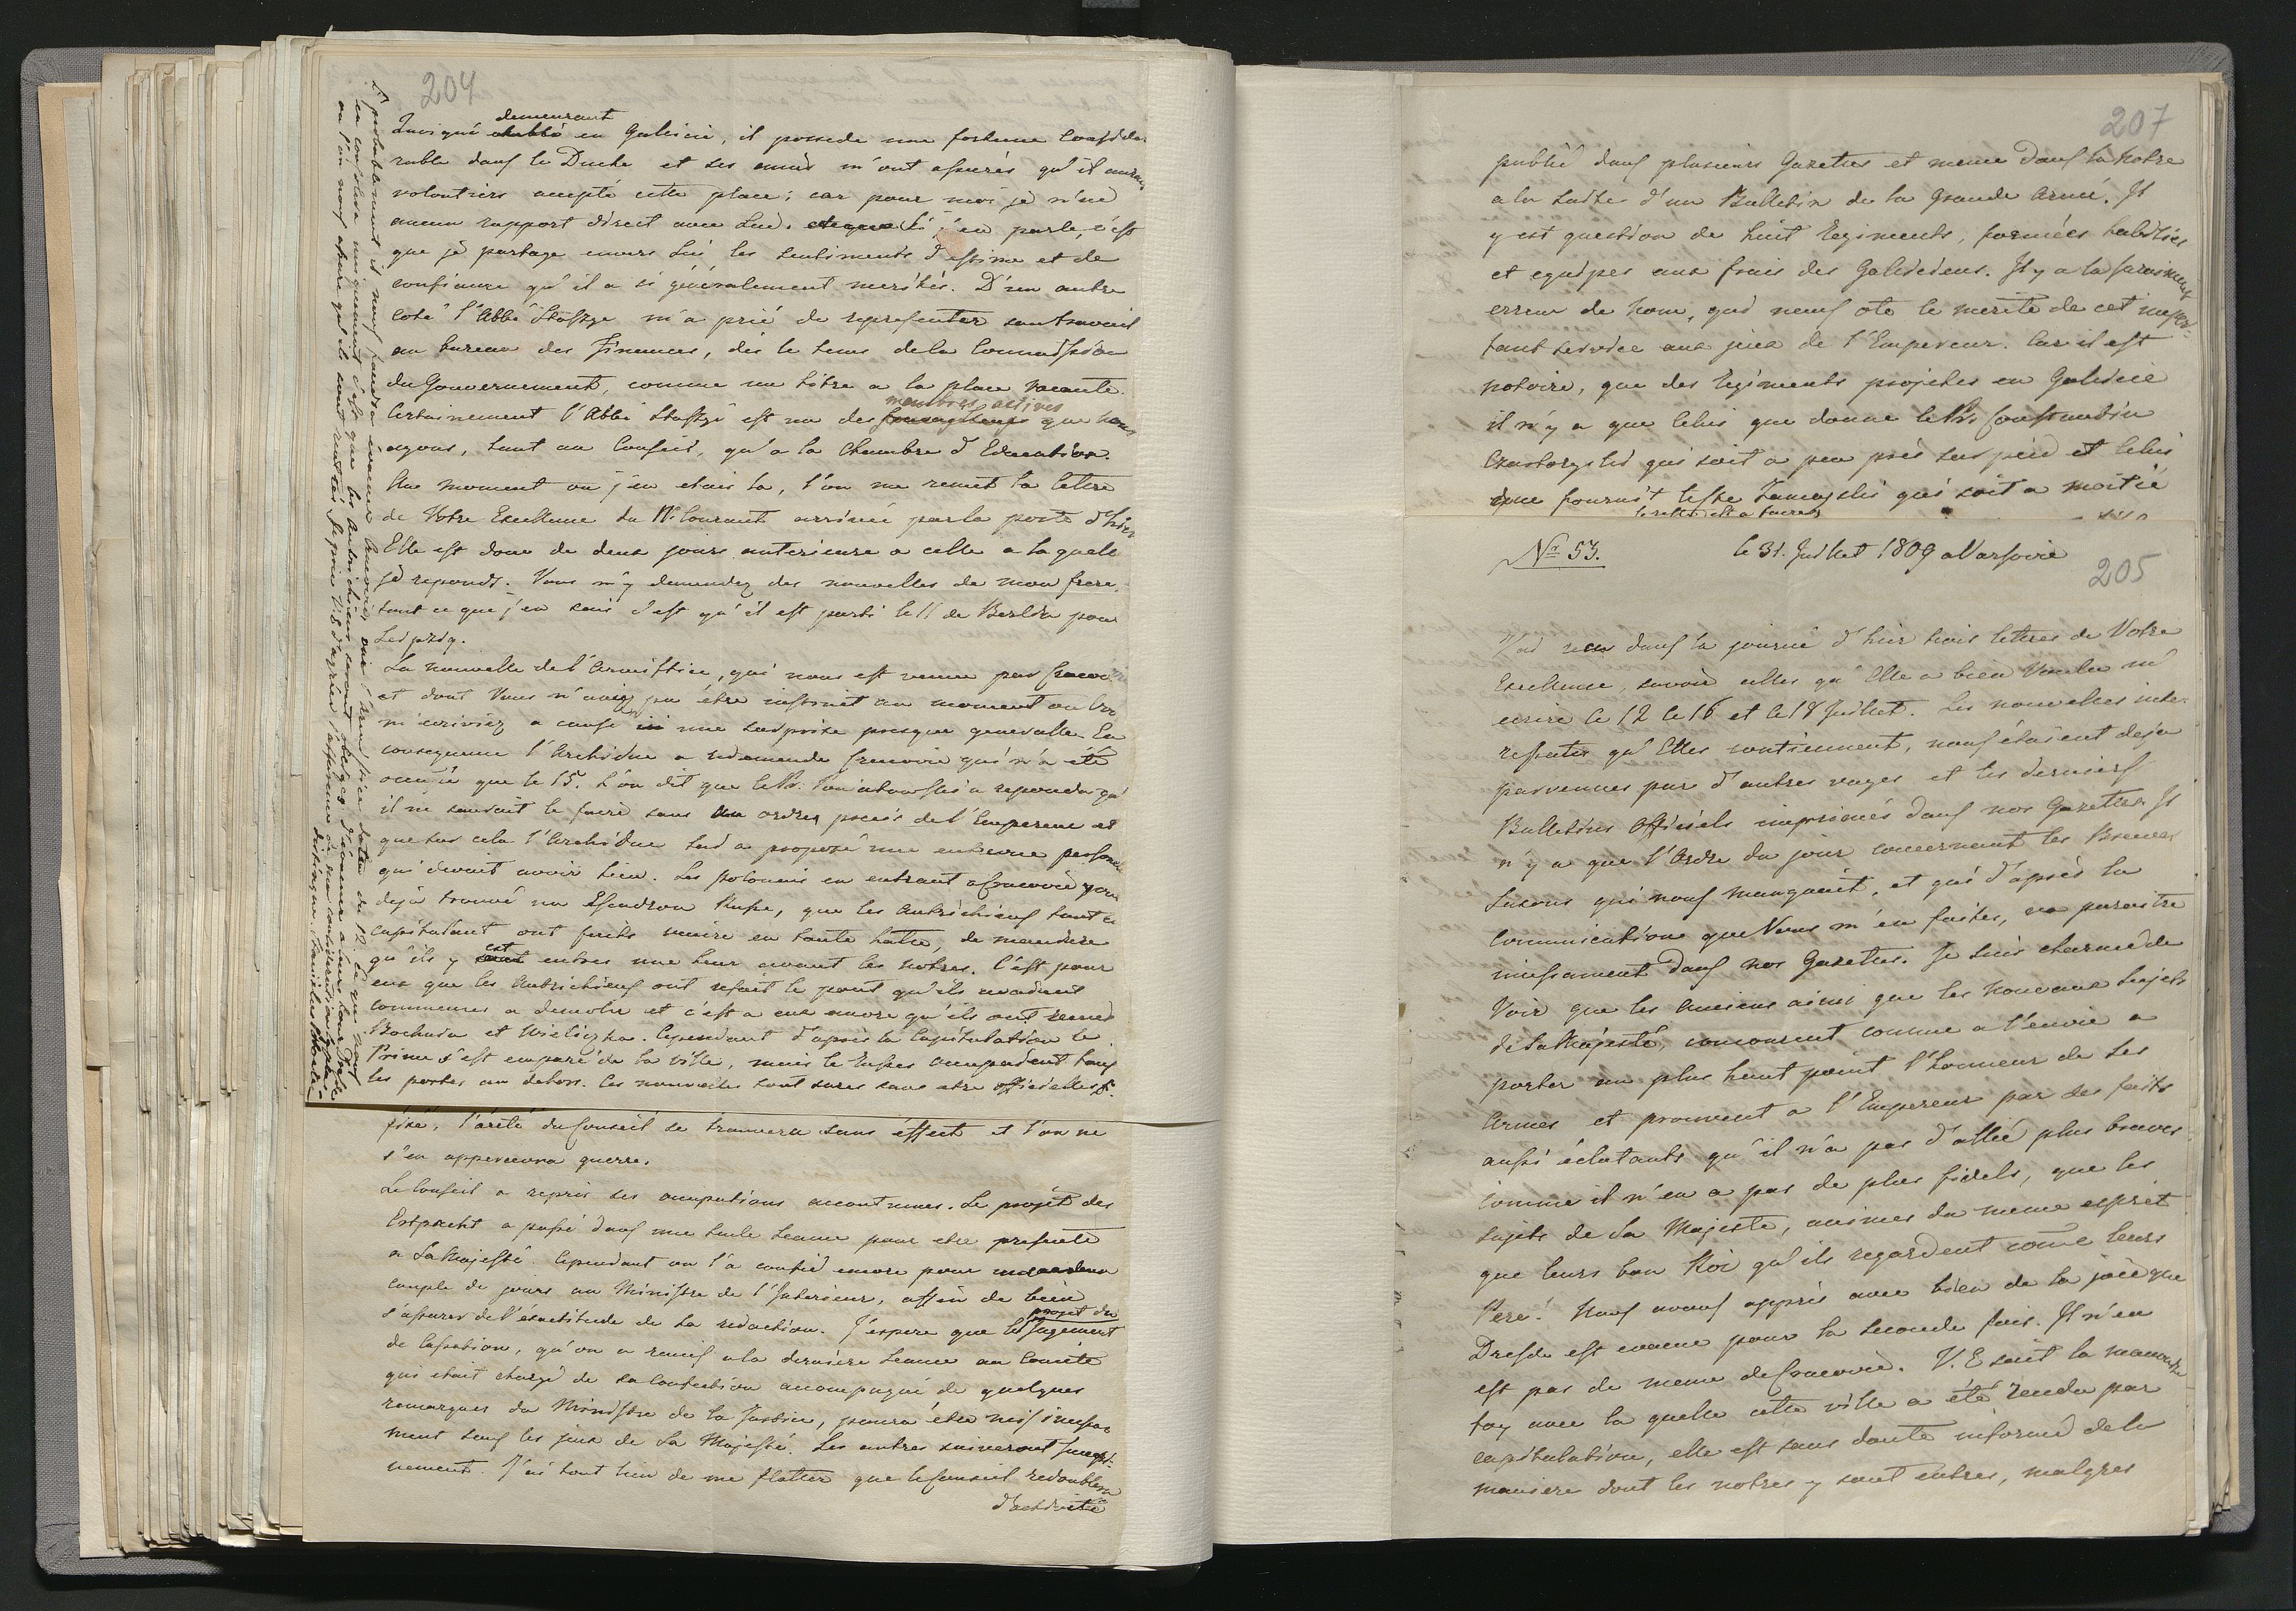 204
demeurant
Quoiqué etabli en Galicie, il possede une fortune conside-
rable dans le Duché et ses amis m'ont assurés qu'il aurait
volontiers accepté cette place; car pour moi je n'ai
aucun rapport direct avec Lui. Si j'en parle, c'est
que je partage envers Lui les sentiments d'estime et de
confiance qu'il a si généralement merités. D'un autre
coté l'Abbé Staszyc m'a prié de representer son travail
au bureau des Finances, dès le tems de la Commission
du Gouvernement, comme un titre a la place vacante.
membres actives
Certainement l'Abbé Staszyc est un des que nous
ayons, tant au Conseil, qu'a la Chambre d'Education.
Au moment ou j'en etais la, l'on me remet la lettre
de Votre Excellence du 11 Courant arrivée par la poste d'hier
Elle est donc de deux jours anterieure a celle a la quelle
je reponds. Vous m'y demandez des nouvelles de mon frere
tout ce que j'en sais c'est qu'il est parti le 11 de Berlin pour
Leipzig.
La nouvelle de l'Armistice, qui nous est venue par Cracovie
et dont Vous n'aviez pu être instruit au moment ou Vous
m'ecriviez a causé ici une surprise presque generalle. En
consequence l'Archiduc a redemandé Cracovie qui n'a été
occupé que le 15. L'on dit que le Pr. Poniatowski a repondu qu'
il ne sauroit le faire sans un ordres precis de l'Empereur et
que sur cela l'Archiduc Lui a proposé une entrevue personelle
qui devait avoir lieu. Les polonais en entrant a Cracovie y ont
dejà trouvé un Escadron Russe, que les Autrichiens tout en
capitulant ont faits venir en toute hatte, de maniere
qu'ils y est entrés une heur avant les notres. C'est pour
eux que les Autrichiens ont refait le pont qu'ils avaient
commencés a demolir et c'est a eux encore qu'ils ont remis
Bochnia et Wieliczka. Cependant d'après la Capitulation le
Prince s'est emparé de la ville, mais les Russes occupaient tous
les portes au dehors. Ces nouvelles sont sures sans etre officielles
fixé, l'arété du Conseil se trouvera sans éffect et l'on ne
s'en appercevra guerre.
Le Conseil a repris ses occupations accoutumes. Le projet des
Extracht a passé dans une seule seance pour etre presenté
a Sa Majesté. Cependant on l'a confié encore pour une
couple de jours au Ministre de l'Interieur, affin de bien
s'assurer de l'éxactitude de la redaction. J'espere que le projet du Jugement
de Cassation, qu'on a remis a la derniere seance au Comité
qui etait chargé de sa Confection accompagné de quelques
remarques du Ministre de la Justice, poura être mis incessa-
ment sous les jeux de Sa Majesté. Les autres suiveront
J'ai tout lieu de me flatter que le Conseil redoublera
d'activité
207
publié dans plusieurs Gazettes et meme dans la Notre
a la suite d'un Bulletin de la Grande Armé. Il
y est question de huit Regiments, formées habillés
et equipes aux frais des Galiciens. Il y a la surement
erreur de nom, qui nous ote le merite de cet impor-
tant service aux jeux de l'Empereur. Car il est
notoire, que des Regiments projetes en Galicie
il n'y a que Celui que donne le Pr. Constantin
Czartoryski qui soit a peu près sur pied et Celui
que fournit le Cte Zamoyski qui soit a moitié
le reste est a faires
Nr 53. le 31. Juillet 1809 a Varsovie
205
J'ai recu dans la journé d'hier trois lettres de Votre
Excellence, savoir celles qu'Elle a bien Voulu m'
ecrire le 12 le 16 et le 18 Juillet. Les nouvelles inte-
ressantes qu'Elles contiennent, nous étaient deja
parvenues par d'autres voyes et les derniers
Bulletins Officiels imprimés dans nos Gazettes. Il
n'y a que l'Ordre du jour concernant les Braves
Saxons qui nous manquait, et qui d'après la
Communication que Vous m'en faites, va paraitre
incessament dans nos Gazettes. Je suis charmé de
Voir que les Anciens ainsi que les Nouveaux Sujets
de Sa Majesté, concourent comme a l'envie a
porter au plus haut point l'honneur de ses
Armes et prouvent a l'Empereur par des faits
aussi éclatants qu'il n'a pas d'allié plus braves
Comme il n'en a pas de plus fidels, que les
Sujets de Sa Majesté, animes du meme esprit
que leurs bon Roi qu'ils regardent come leurs
Pere! Nous avons appris avec bien de la joie que
Dresde est evacué pour la seconde fois. Il n'en
est pas de meme de Cracovie. V. E sait la mauvaise
foy avec la quelle cette ville a été rendu par
capitulation, elle est sans doute informé de la
maniere dont les notres y sont entres, malgres